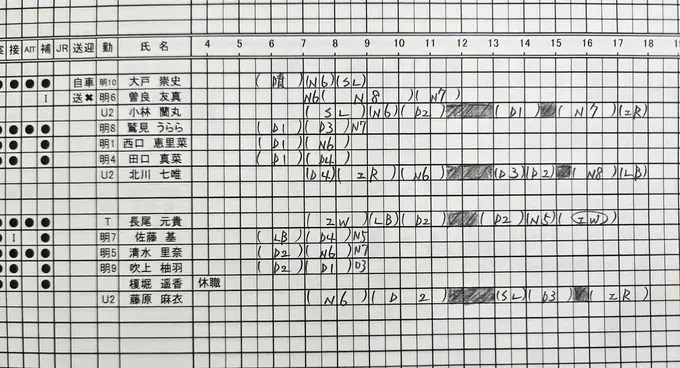 接 AIT 補 JR 送迎 勤 氏 名 4 5 6 7 8 9 10 11 12 13 14 15 16 17 18
自車 明10 大戸 崇史 (噴)(N6)(SL)
I 送✖ 明6 曽良 友真 N6( N8 )(N7)
U2 小林 蘭丸 (SL)(N6)(D2) (D1) (N7)(IR)
明8 鷲見 うらら (D1)(D3)N7
明1 西口 恵里菜 (D1)(N6)
明4 田口 真菜 (D1)(D4)
U2 北川 七唯 (D4)(IR)(N6) (D3)(D2) (N8)(LB)
T 長尾 元貴 (IW)(LB)(D2) (D2)(N5)(IW)
I 明7 佐藤 基 (LB)(D4)N5
明5 清水 里奈 (D2)(N6)N7
明9 吹上 柚羽 (D2)(D1)D3
榎堀 遥香 休職
U2 藤原 麻衣 (N6)(D2) (SL)(D3) (IR)